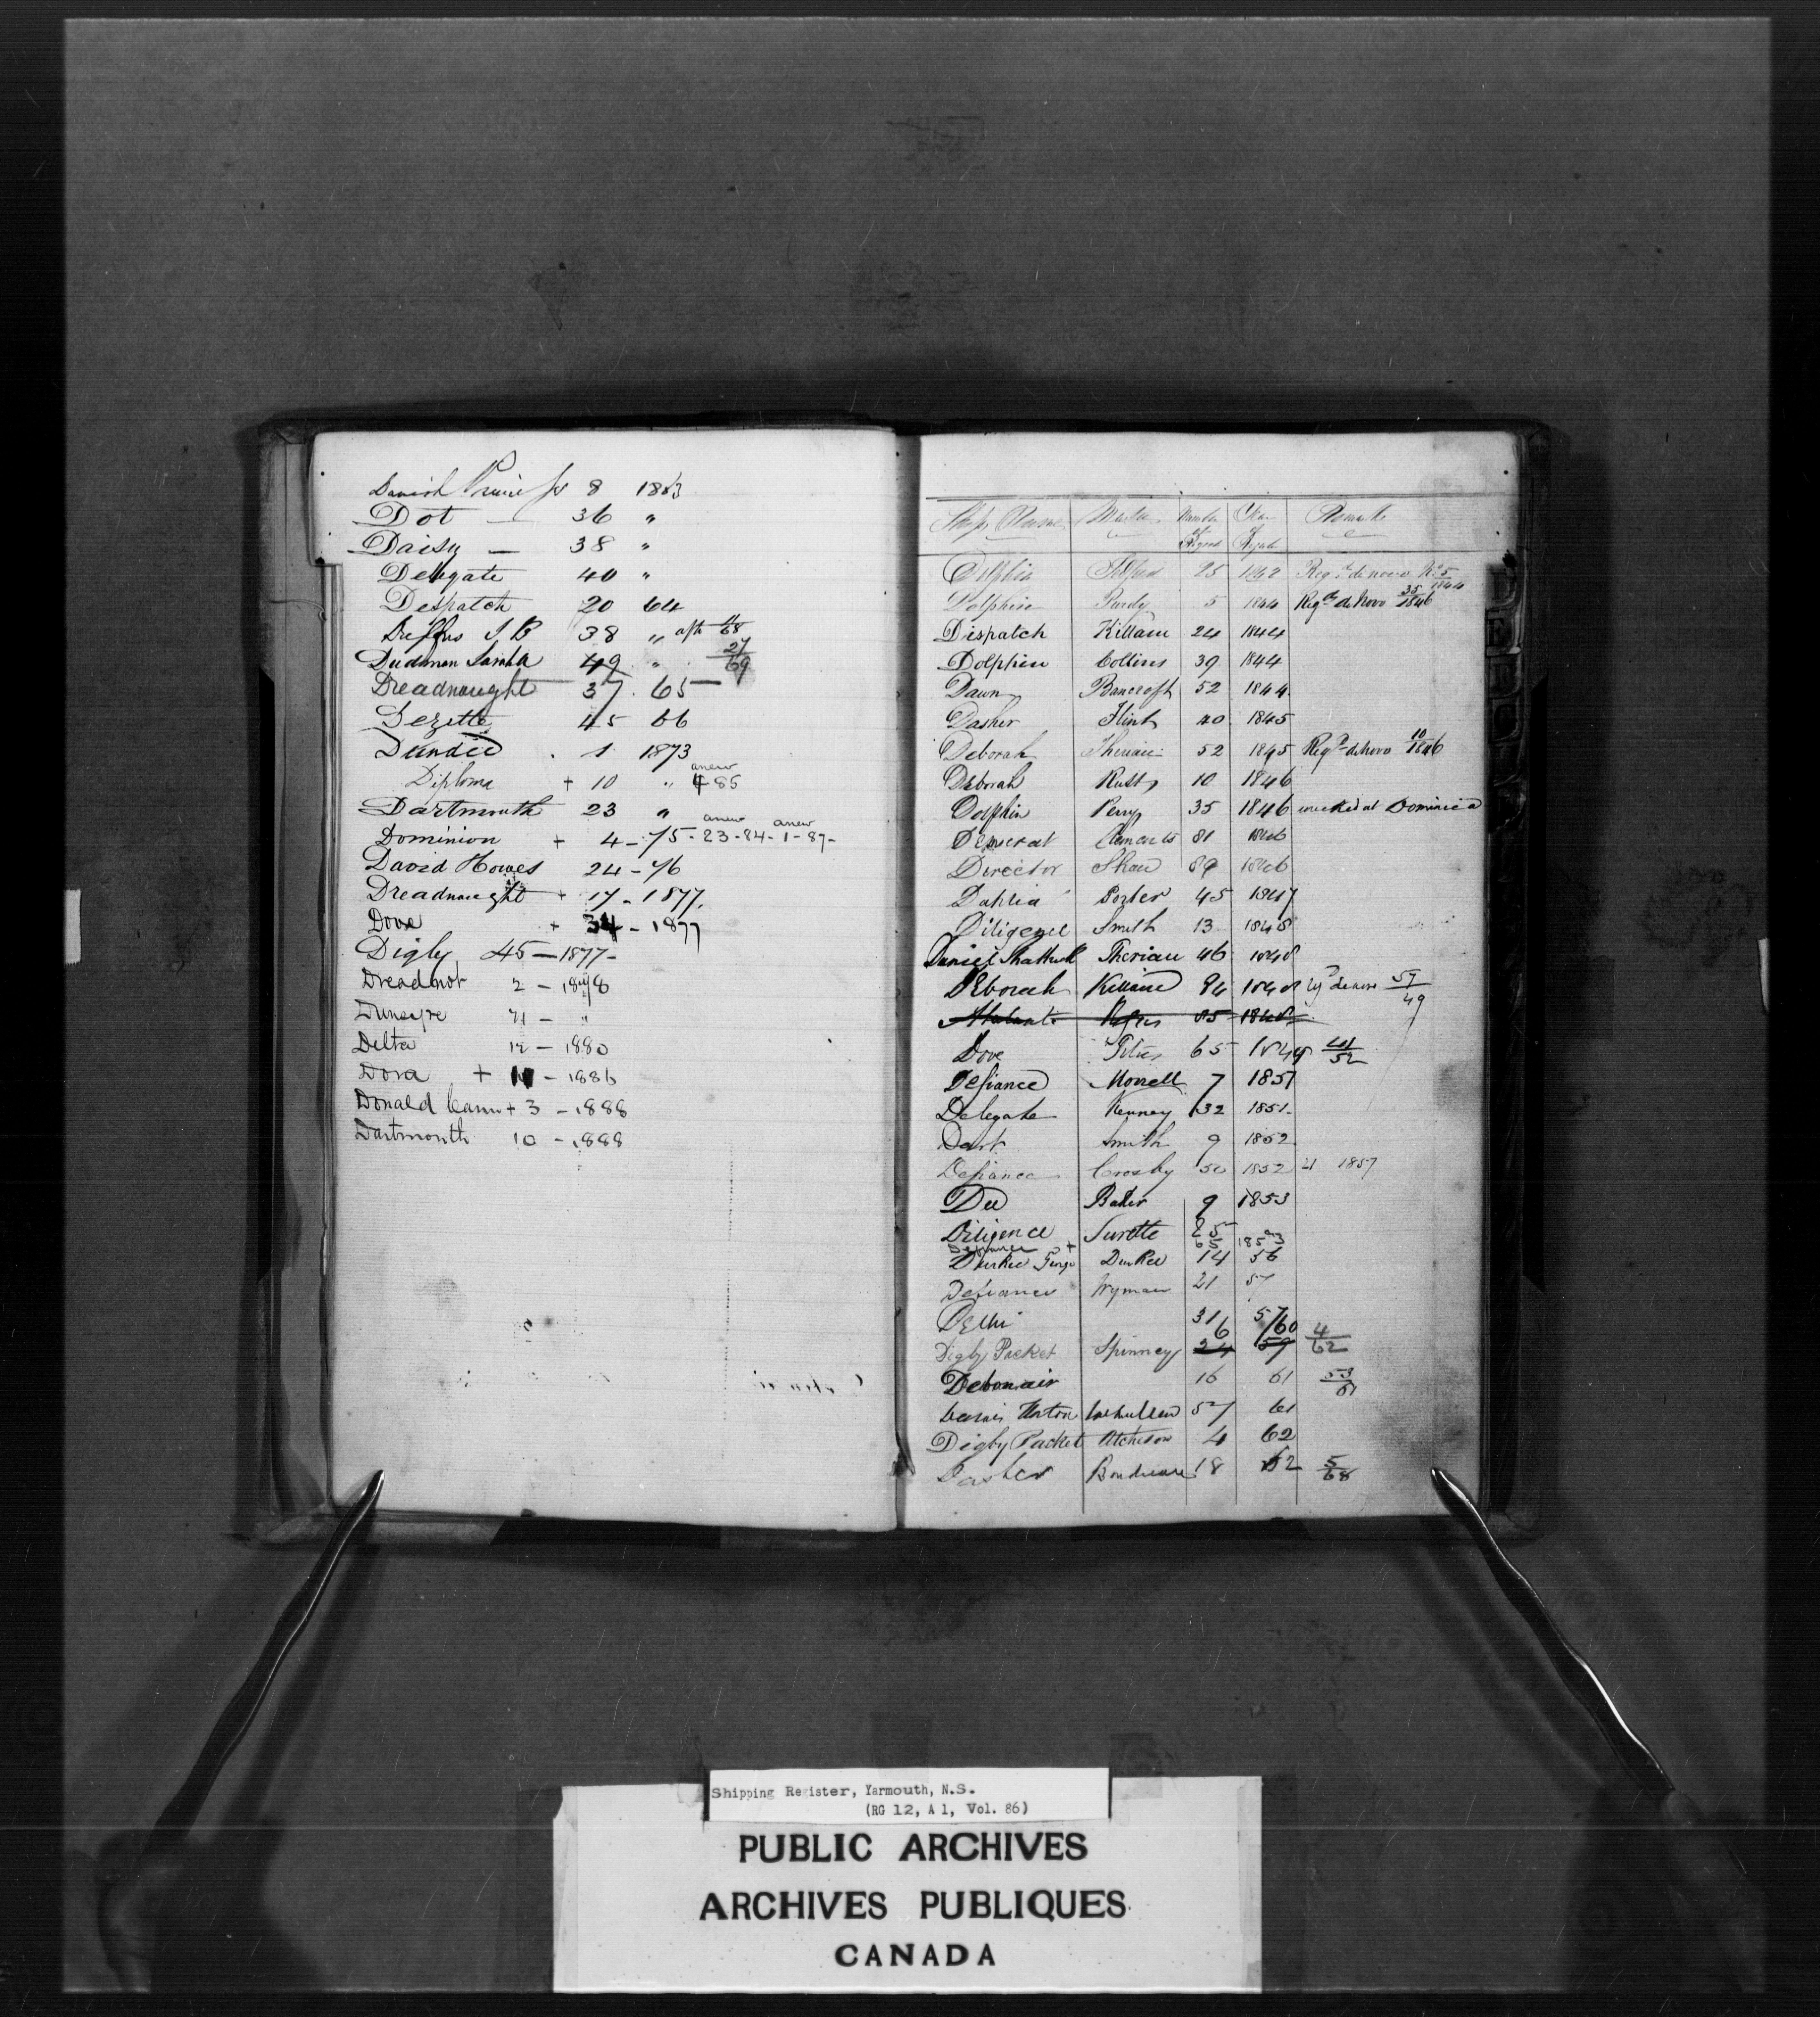 Danish Princess 8 1863
Dot — 36 "
Daisy — 38 "
Delegate 40 "
Despatch 20 64
38 "
Dudman Sarah A 49 " 27/69
Dreadnaught 37 . 65 —
45 66
Dundee . 1 1873
Diploma + 10 " anew 4 85
Dartmouth 23 "
Dominion + 4 - 75 - anew 23 - 84 - anew 1 - 87 -
David Howes 24 - 76
Dreadnaught + 17 - 1877.
Dove + 34 - 1877
Digby 45 — 1877 -
Dreadnot 2 — 1878
Dunsyre 71 — "
Delta 12 — 1880
Dora + — 1886
Donald Cann + 3 — 1888
Dartmouth 10 — 1888
Ships Name Master Number of Register Year of Registr Remarks
Dolphin 25 1842 Regd. de novo No 5 1844
Dolphin Purdy 5 1844 Regd. de Novo 35/1846
Dispatch Killam 24 1844
Dolphin Collins 39 1844
Dawn Bancroft 52 1844
Dasher Flint 40 1845
Deborah Theriau 52 1845 Regd. de Novo 10/1846
Deborah Rust 10 1846
Dolphin Perry 35 1846 wrecked at Dominica
Democrat Clements 81 1846
Director Shaw 89 1846
Dahlia Porter 45 1847
Diligence Smith 13 1848
Daniel Shattuck Theriau 46 1848
Deborah Killam 84 1848 de novo 57/49
85 1848
Dove Titus 65 1849 41/52
Defiance Morrell 7 1851
Delegate Kenney 32 1851
Dart Smith 9 1852
Defiance Crosby 50 1852 21 1857
Dee Baker 9 1853
Diligence Surette 25
65 1853
Durkee George Durkee 14 56
Defiance Wyman 21 57
Delhi 31 57
6 60 4/62
Digby Packet Spinney 24 59
Debonair 16 61 53/61
Horton 57 61
Digby Packet Atcheson 4 62
Dasher 18 62 5/68
Shipping Register, Yarmouth, N.S.
(RG 12, A 1, Vol. 86)
PUBLIC ARCHIVES
ARCHIVES PUBLIQUES
CANADA